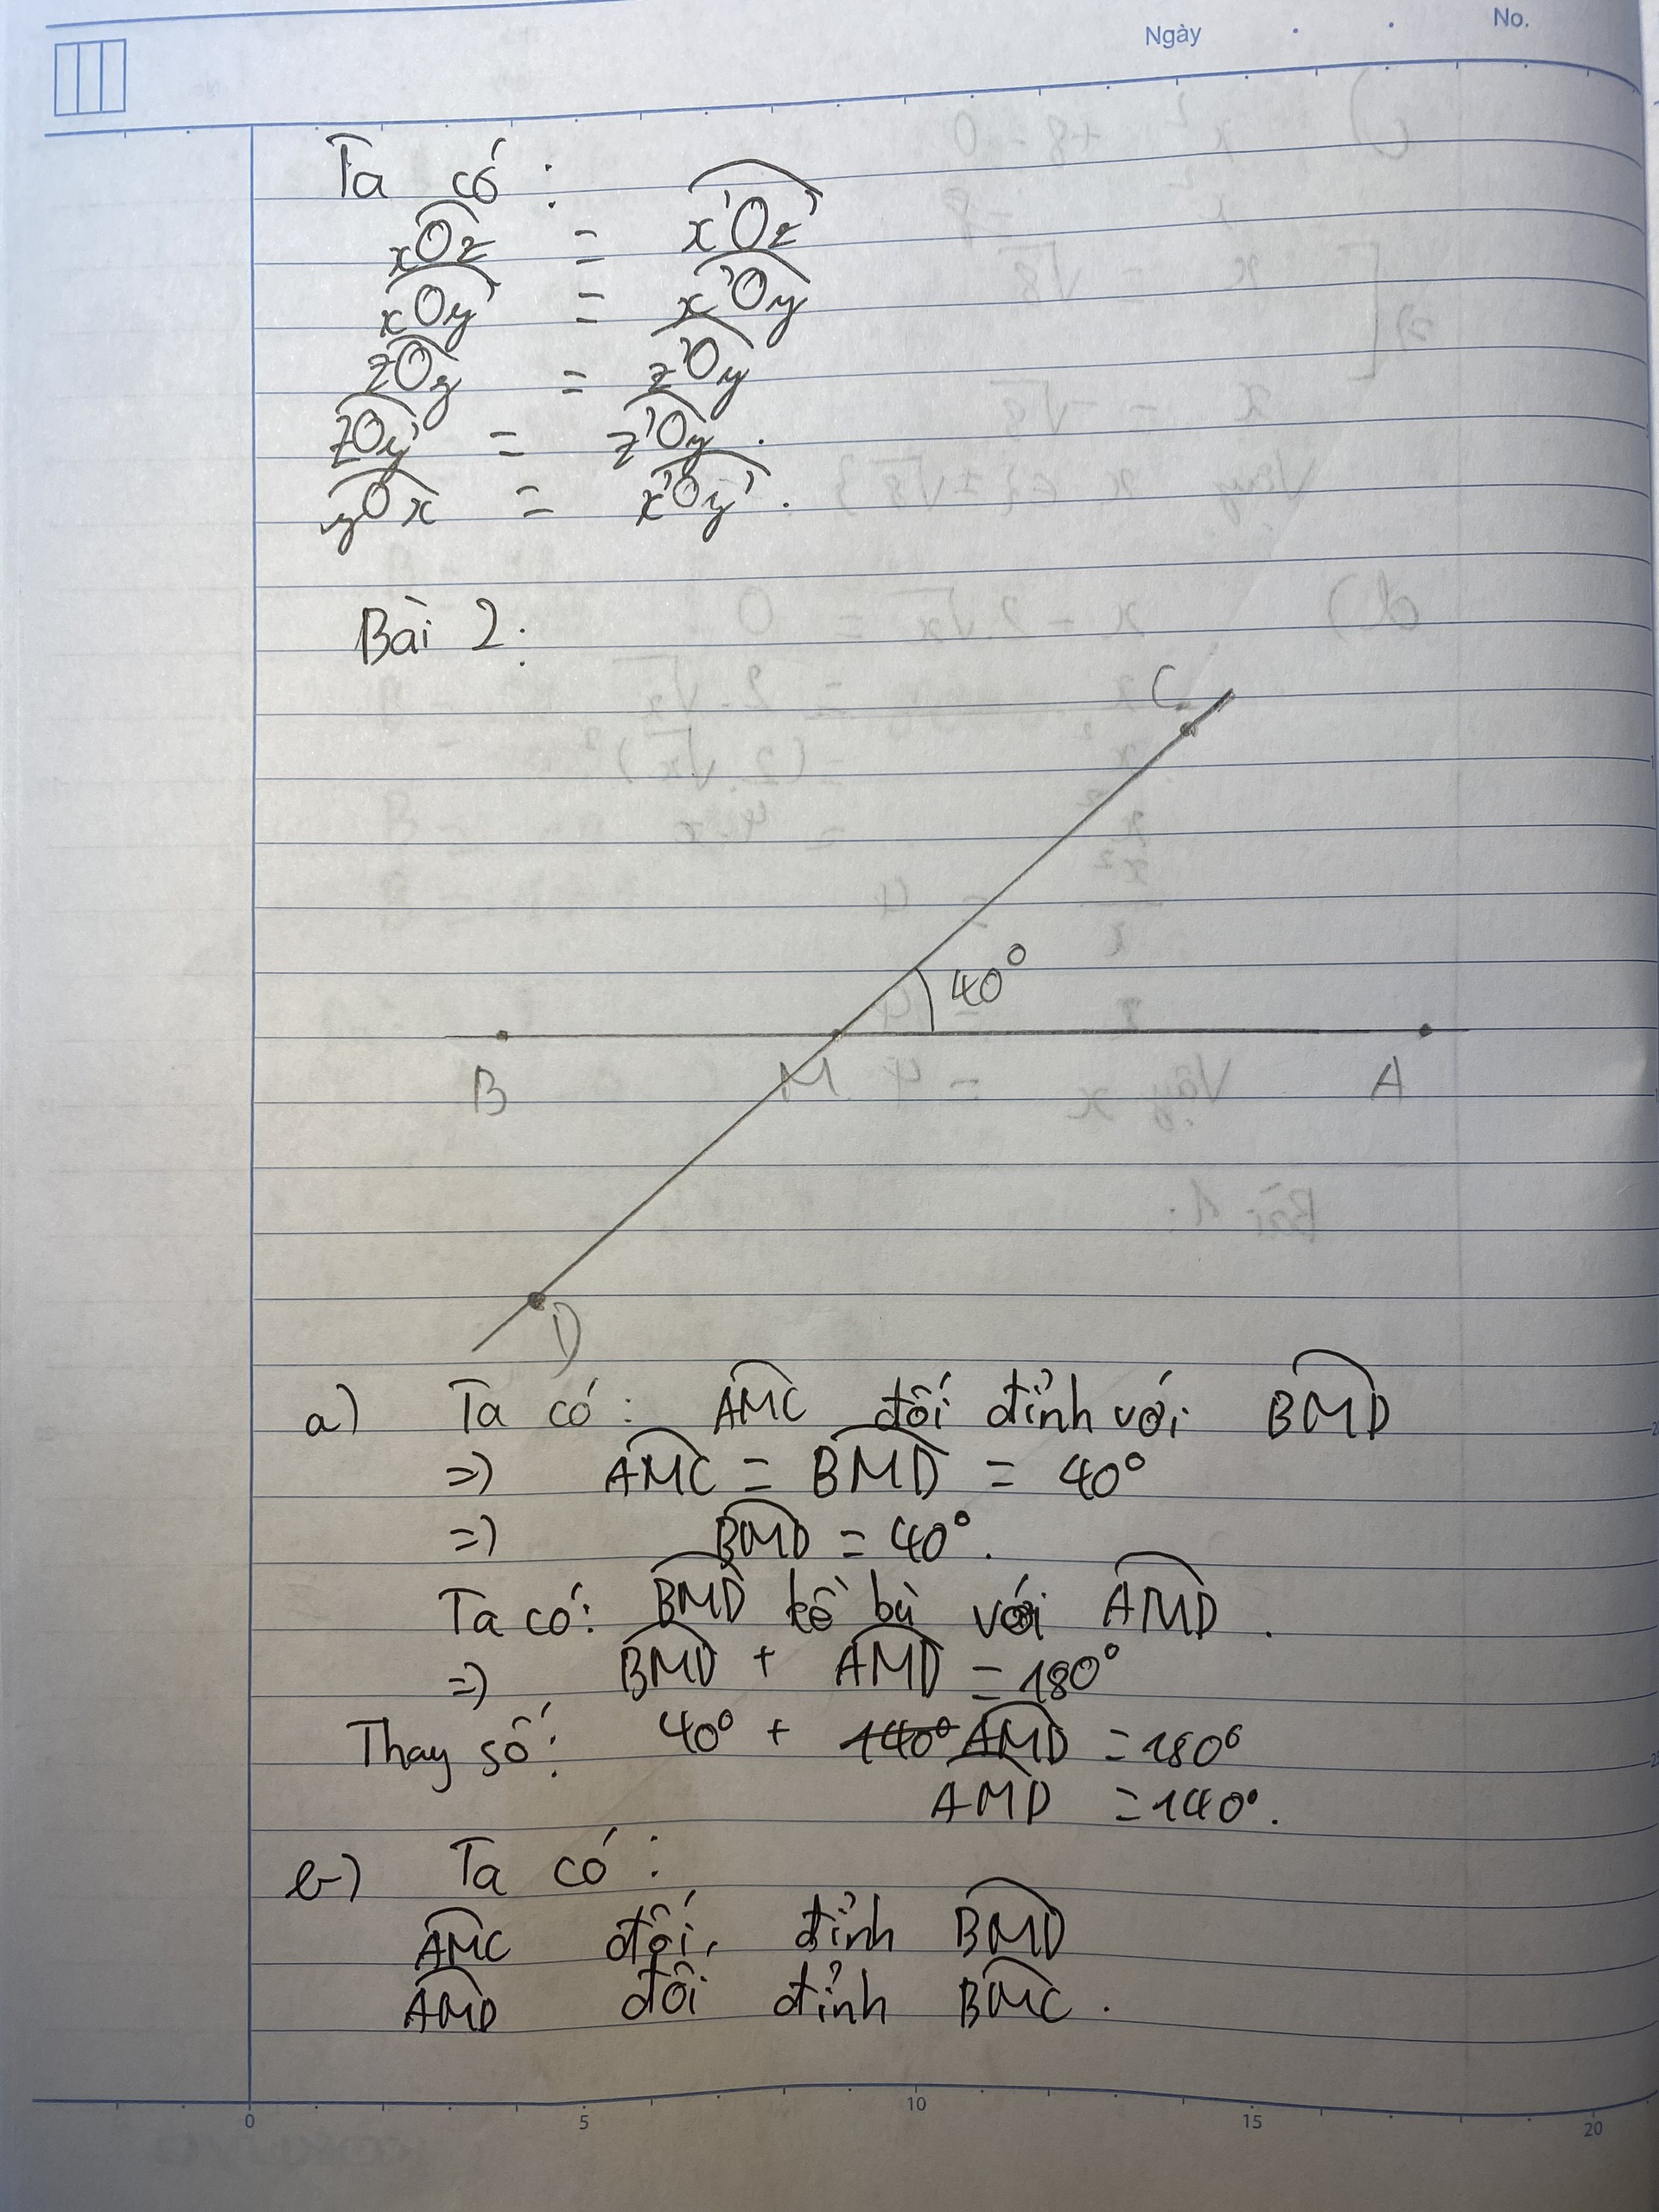 Ngày
No.
Ta có :
xOz = x'Oz'
xOy' = x'Oy
zOy = z'Oy
zOy' = z'Oy .
yOx = x'Oy' .
Bài 2:
C
40°
B M A
D
a) Ta có : AMC đối đỉnh với BMD
=) AMC = BMD = 40°
=) BMD = 40°.
Ta có: BMD kề bù với AMD .
=) BMD + AMD = 180°
Thay số: 40° + 140° AMD = 180°
AMD = 140°.
b) Ta có :
AMC đối đỉnh BMD
AMD đối đỉnh BMC .
0 5 10 15 20